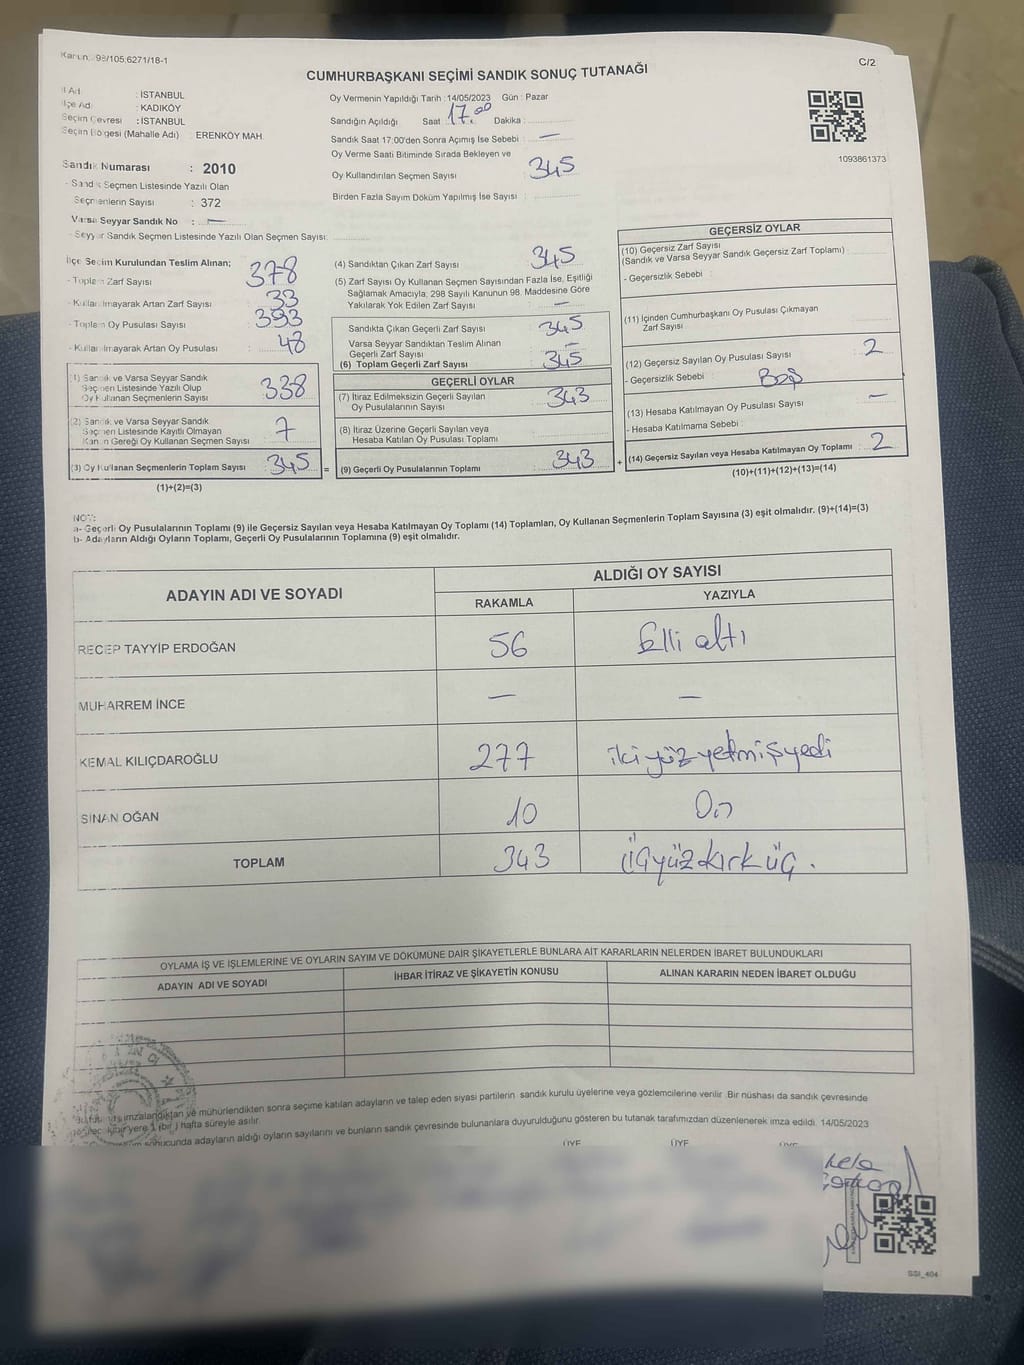 Kanun: 98/105:6271/18-1
C/2
CUMHURBAŞKANI SEÇİMİ SANDIK SONUÇ TUTANAĞI
İl Adı : İSTANBUL
İlçe Adı : KADIKÖY
Seçim Çevresi : İSTANBUL
Seçim Bölgesi (Mahalle Adı) : ERENKÖY MAH.
Sandık Numarası : 2010
- Sandık Seçmen Listesinde Yazılı Olan
Seçmenlerin Sayısı : 372
Varsa Seyyar Sandık No : —
- Seyyar Sandık Seçmen Listesinde Yazılı Olan Seçmen Sayısı:
Oy Vermenin Yapıldığı Tarih : 14/05/2023 Gün : Pazar
Sandığın Açıldığı Saat : 17.00 Dakika :
Sandık Saat 17:00'den Sonra Açılmış İse Sebebi : —
Oy Verme Saati Bitiminde Sırada Bekleyen ve
Oy Kullandırılan Seçmen Sayısı : 345
Birden Fazla Sayım Döküm Yapılmış İse Sayısı :
1093861373
İlçe Seçim Kurulundan Teslim Alınan;
- Toplam Zarf Sayısı : 378
- Kullanılmayarak Artan Zarf Sayısı : 33
- Toplam Oy Pusulası Sayısı : 393
- Kullanılmayarak Artan Oy Pusulası : 48
(1) Sandık ve Varsa Seyyar Sandık
Seçmen Listesinde Yazılı Olup
Oy Kullanan Seçmenlerin Sayısı : 338
(2) Sandık ve Varsa Seyyar Sandık
Seçmen Listesinde Kayıtlı Olmayan
Kanun Gereği Oy Kullanan Seçmen Sayısı : 7
(3) Oy Kullanan Seçmenlerin Toplam Sayısı : 345 =
(1)+(2)=(3)
(4) Sandıktan Çıkan Zarf Sayısı : 345
(5) Zarf Sayısı Oy Kullanan Seçmen Sayısından Fazla İse, Eşitliği
Sağlamak Amacıyla; 298 Sayılı Kanunun 98. Maddesine Göre
Yakılarak Yok Edilen Zarf Sayısı : —
Sandıkta Çıkan Geçerli Zarf Sayısı : 345
Varsa Seyyar Sandıktan Teslim Alınan
Geçerli Zarf Sayısı : —
(6) Toplam Geçerli Zarf Sayısı : 345
GEÇERLİ OYLAR
(7) İtiraz Edilmeksizin Geçerli Sayılan
Oy Pusulalarının Sayısı : 343
(8) İtiraz Üzerine Geçerli Sayılan veya
Hesaba Katılan Oy Pusulası Toplamı :
(9) Geçerli Oy Pusulalarının Toplamı : 343 +
GEÇERSİZ OYLAR
(10) Geçersiz Zarf Sayısı
(Sandık ve Varsa Seyyar Sandık Geçersiz Zarf Toplamı) :
- Geçersizlik Sebebi :
(11) İçinden Cumhurbaşkanı Oy Pusulası Çıkmayan
Zarf Sayısı :
(12) Geçersiz Sayılan Oy Pusulası Sayısı : 2
- Geçersizlik Sebebi : Boş
(13) Hesaba Katılmayan Oy Pusulası Sayısı : —
- Hesaba Katılmama Sebebi :
(14) Geçersiz Sayılan veya Hesaba Katılmayan Oy Toplamı : 2
(10)+(11)+(12)+(13)=(14)
NOT:
a- Geçerli Oy Pusulalarının Toplamı (9) ile Geçersiz Sayılan veya Hesaba Katılmayan Oy Toplamı (14) Toplamları, Oy Kullanan Seçmenlerin Toplam Sayısına (3) eşit olmalıdır. (9)+(14)=(3)
b- Adayların Aldığı Oyların Toplamı, Geçerli Oy Pusulalarının Toplamına (9) eşit olmalıdır.
ADAYIN ADI VE SOYADI
ALDIĞI OY SAYISI
RAKAMLA YAZIYLA
RECEP TAYYİP ERDOĞAN 56 Elli altı
MUHARREM İNCE — —
KEMAL KILIÇDAROĞLU 277 ikiyüz yetmişyedi
SİNAN OĞAN 10 On
TOPLAM 343 Üçyüz kırk üç.
OYLAMA İŞ VE İŞLEMLERİNE VE OYLARIN SAYIM VE DÖKÜMÜNE DAİR ŞİKAYETLERLE BUNLARA AİT KARARLARIN NELERDEN İBARET BULUNDUKLARI
ADAYIN ADI VE SOYADI İHBAR İTİRAZ VE ŞİKAYETİN KONUSU ALINAN KARARIN NEDEN İBARET OLDUĞU
imzalandıktan ve mühürlendikten sonra seçime katılan adayların ve talep eden siyasi partilerin sandık kurulu üyelerine veya gözlemcilerine verilir. Bir nüshası da sandık çevresinde
bir yere 1 (bir) hafta süreyle asılır.
sonucunda adayların aldığı oyların sayılarını ve bunların sandık çevresinde bulunanlara duyurulduğunu gösteren bu tutanak tarafımızdan düzenlenerek imza edildi. 14/05/2023
ÜYE ÜYE ÜYE
SSI_404